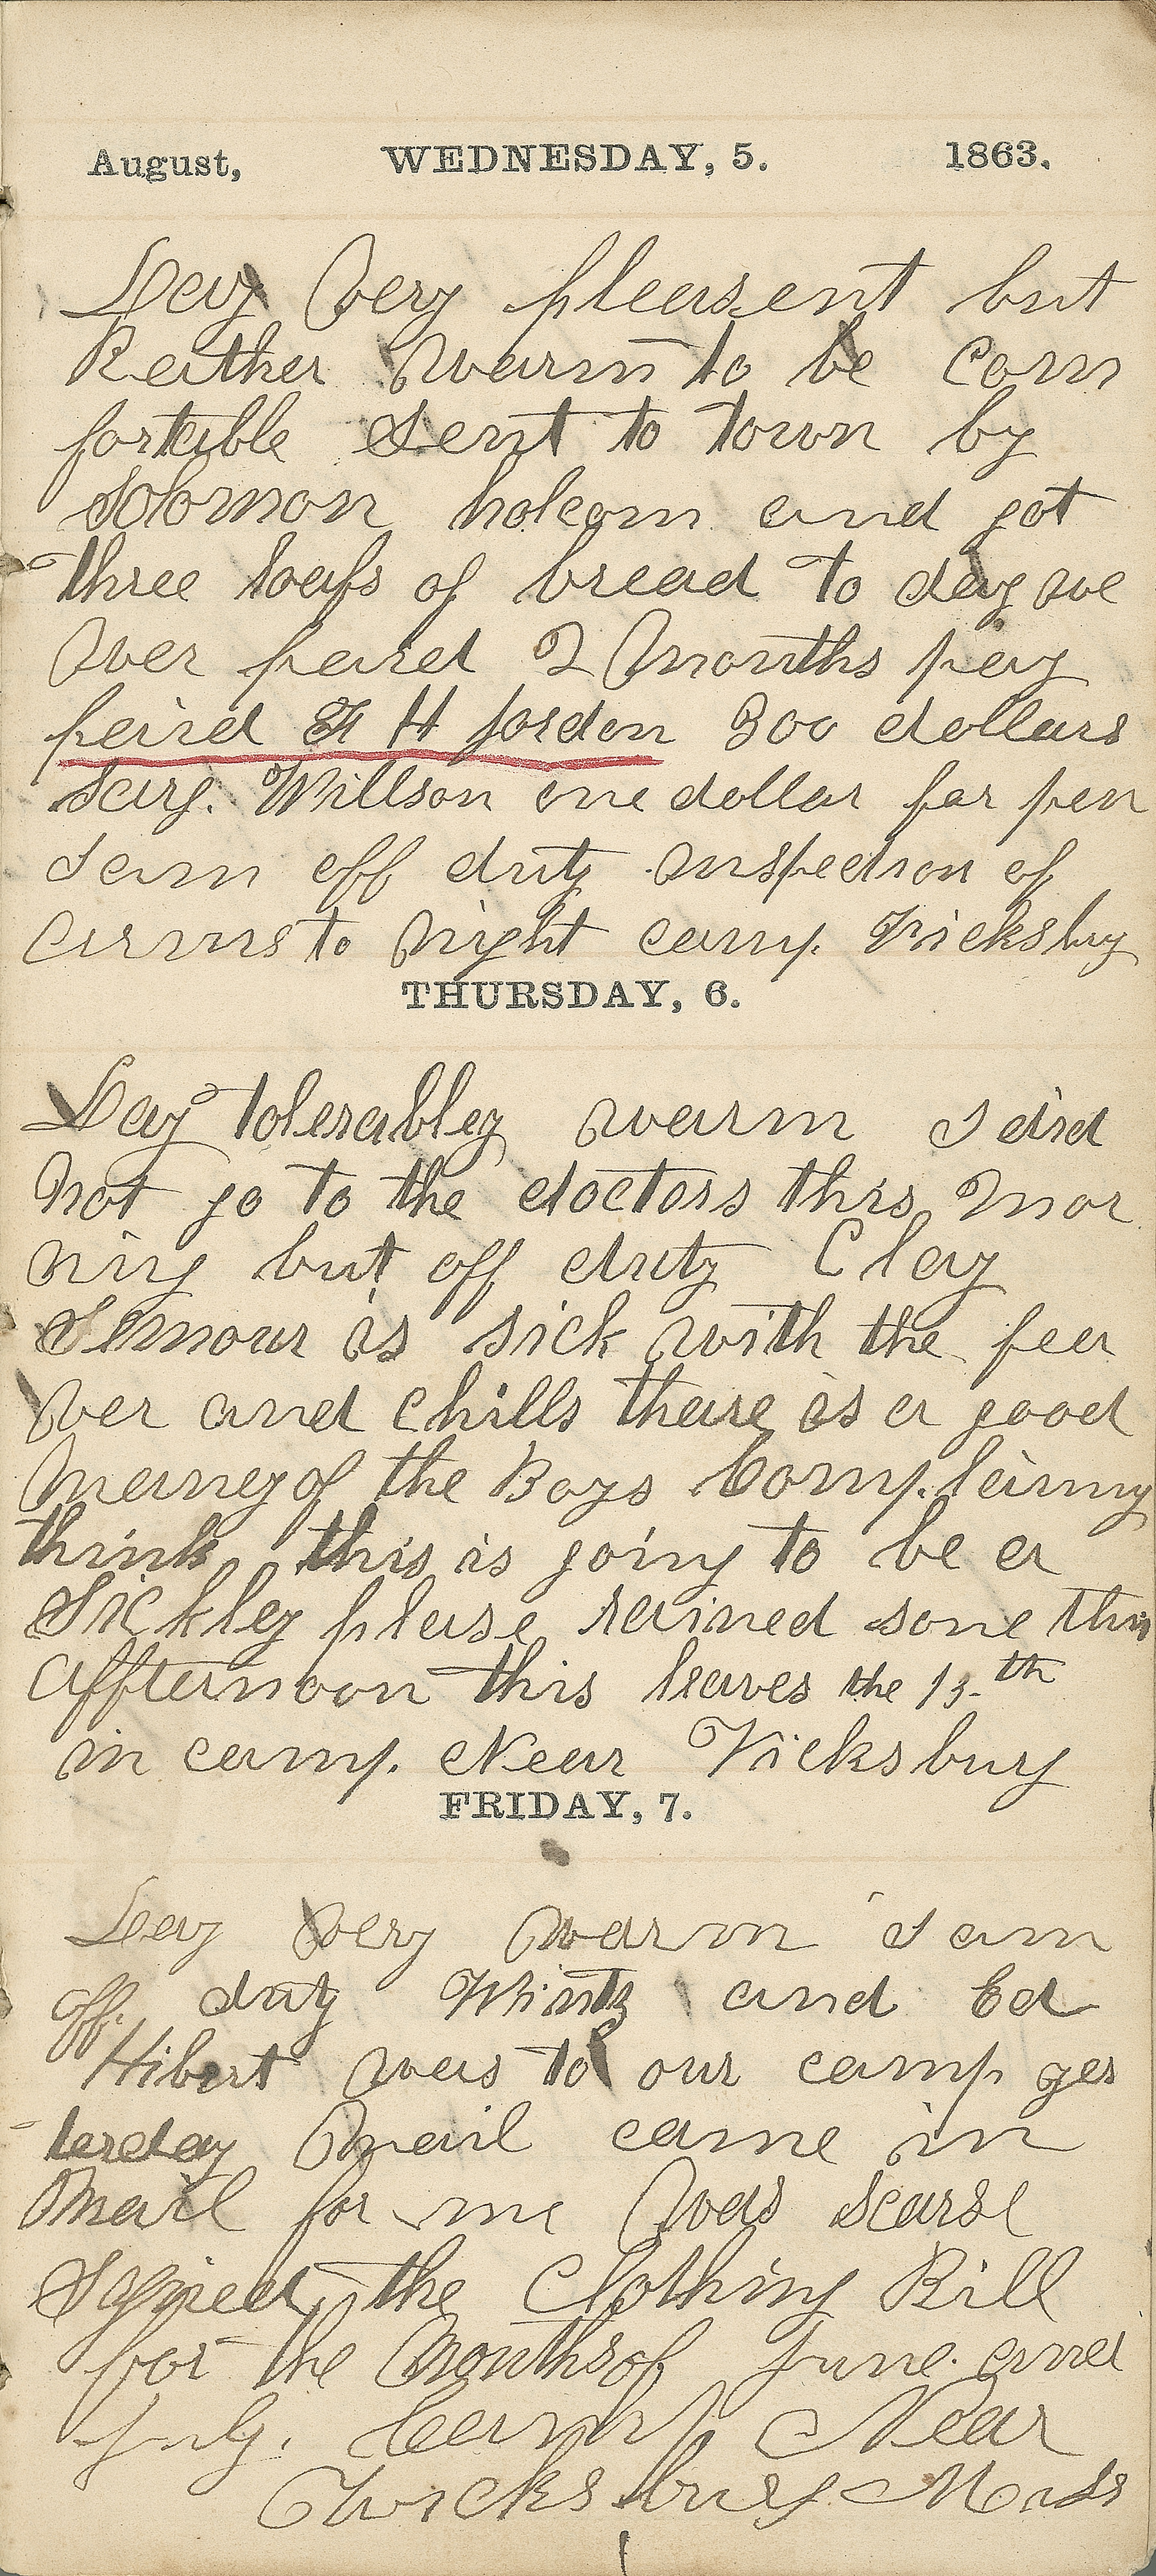 August, WEDNESDAY, 5. 1863.
Day Very pleasent but
Rather warm to be Com
fortable Sent to town by
Solomon holcom and got
three loafs of bread to day we
Wer paid 2 Months pay
paid H Jordon 300 dollars
Sarg. Willson one dollar for pen
I am off duty inspection of
arms to Night camp. Vicksburg
THURSDAY, 6.
Day tolerabley warm I did
Not go to the doctors this Mor
ning but off duty Clay
Simour is sick with the fee
ver and chills there is a good
Maney of the Boys Complaining
think this is going to be a
Sickley plase rained some this
affternoon this leaves the 13.th
in camp. Near Vicksburg
FRIDAY, 7.
Day Very Warm I am
off duty Wintz and Ed
Hibert was to our camp yes
terday Mail came in
Mail for me Was scarse
Signed the Clothing Bill
for the Months of June. and
July. Camp Near
Vicksburg Miss